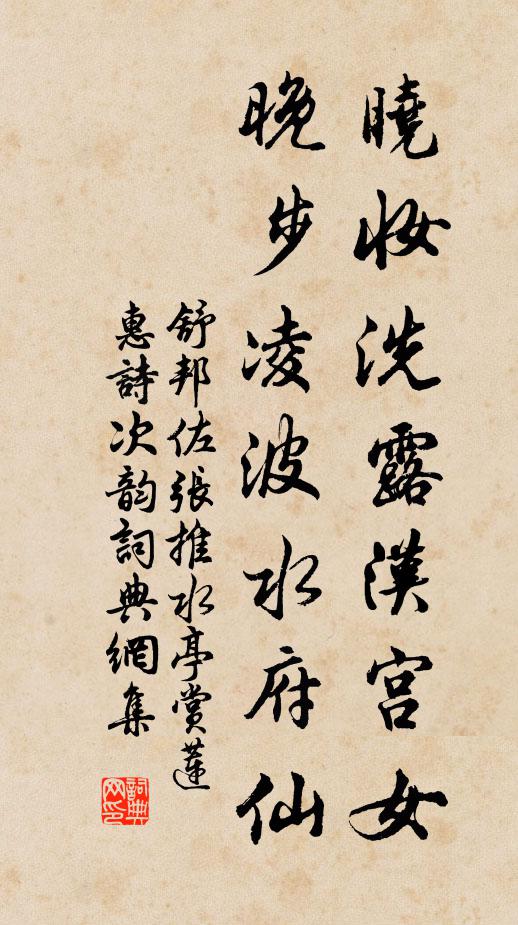 曉妝洗露漢宮女
晚步凌波水府仙
舒邦佐張推水亭賞蓮
惠詩次韵詞典網集
詞典
网印